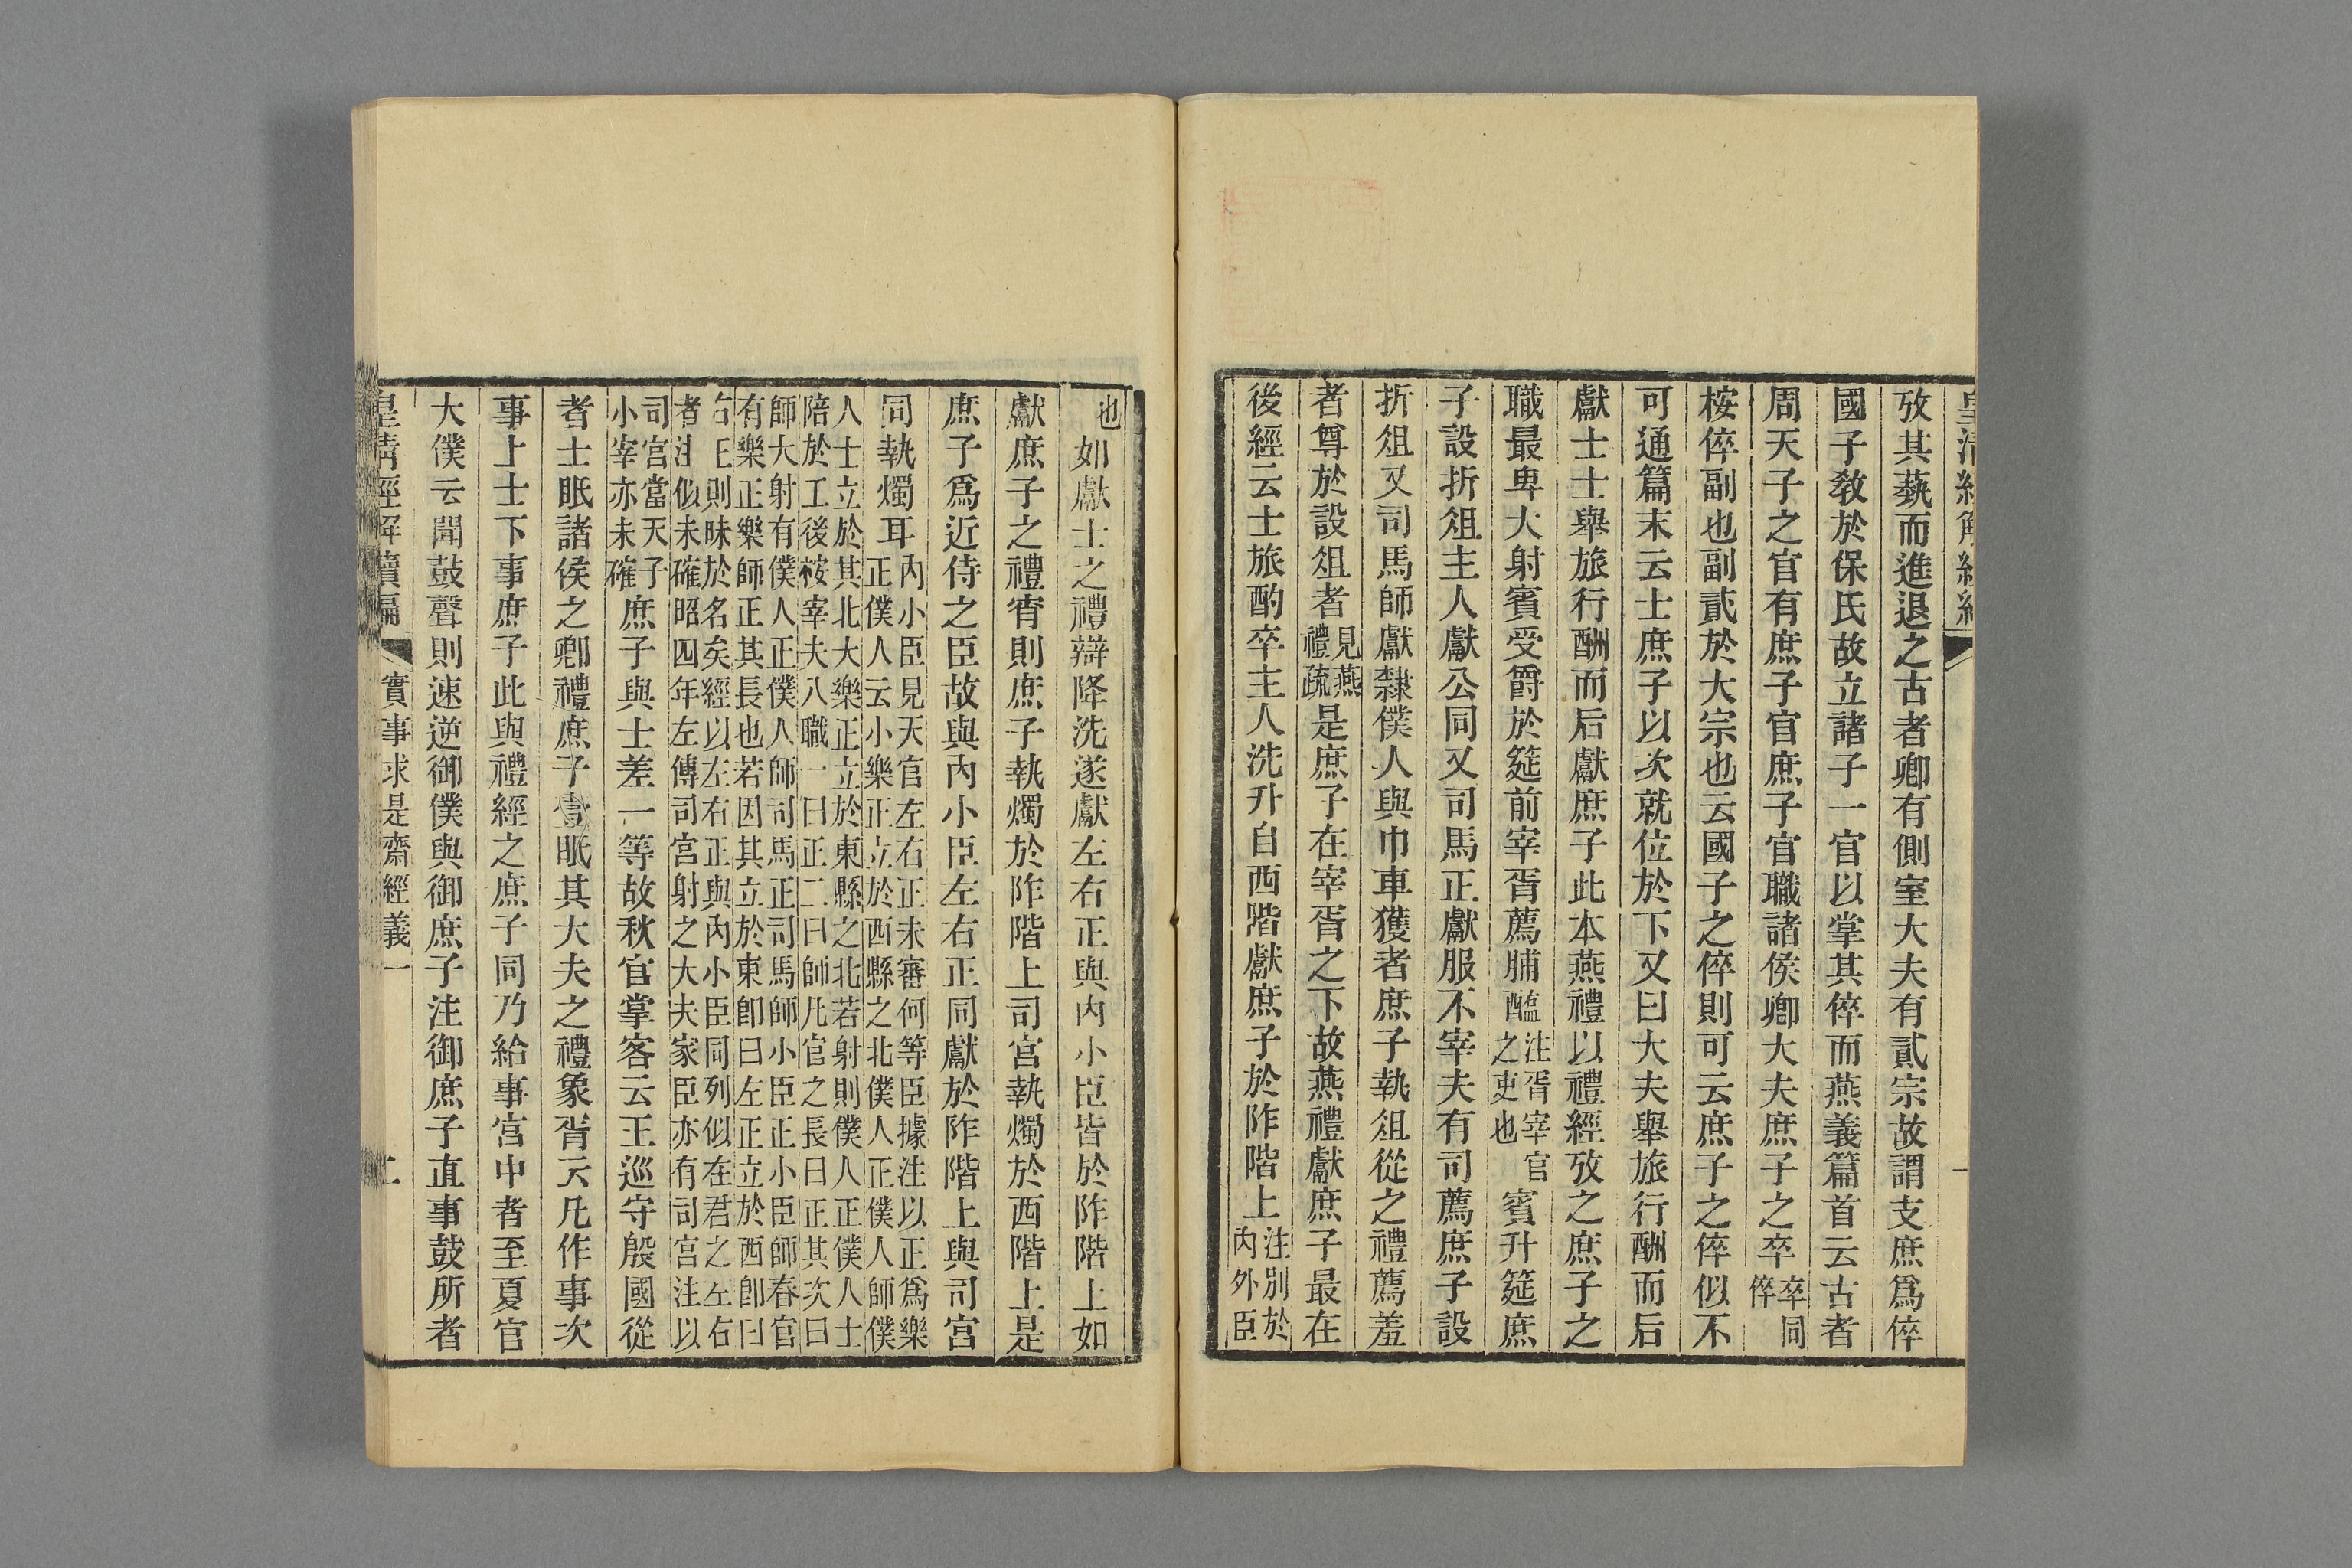 皇清經解續編
一
攷其蓺而進退之古者卿有側室大夫有貳宗故謂支庶爲倅
國子敎於保氏故立諸子一官以掌其倅而燕義篇首云古者
周天子之官有庶子官庶子官職諸侯卿大夫庶子之卒卒同倅
桉倅副也副貳於大宗也云國子之倅則可云庶子之倅似不
可通篇末云士庶子以次就位於下又曰大夫舉旅行酬而后
獻士士舉旅行酬而后獻庶子此本燕禮以禮經攷之庶子之
職最卑大射賓受爵於筵前宰胥薦脯醢注胥宰官之吏也賓升筵庶
子設折俎主人獻公同又司馬正獻服不宰夫有司薦庶子設
折俎又司馬師獻隸僕人與巾車獲者庶子執俎從之禮薦羞
者尊於設俎者見燕禮疏是庶子在宰胥之下故燕禮獻庶子最在
後經云士旅酌卒主人洗升自西階獻庶子於阼階上注別於內外臣
也如獻士之禮辯降洗遂獻左右正與內小臣皆於阼階上如
獻庶子之禮宵則庶子執燭於阼階上司宮執燭於西階上是
庶子爲近侍之臣故與內小臣左右正同獻於阼階上與司宮
同執燭耳內小臣見天官左右正未審何等臣據注以正爲樂正僕人云小樂正立於西縣之北僕人正僕人師僕
人士立於其北大樂正立於東縣之北若射則僕人正僕人士陪於工後桉宰夫八職一曰正二曰師凡官之長曰正其次曰
師大射有僕人正僕人師司馬正司馬師小臣正小臣師春官有樂正樂師正其長也若因其立於東卽曰左正立於西卽曰
右正則昧於名矣經以左右正與內小臣同列似在君之左右者注似未確昭四年左傳司宮射之大夫家臣亦有司宮注以
司宮當天子小宰亦未確庶子與士差一等故秋官掌客云王巡守殷國從
者士眂諸侯之卿禮庶子壹眂其大夫之禮象胥云凡作事次
事上士下事庶子此與禮經之庶子同乃給事宮中者至夏官
大僕云聞鼓聲則速逆御僕與御庶子注御庶子直事鼓所者
皇清經解續編
實事求是齋經義一
二